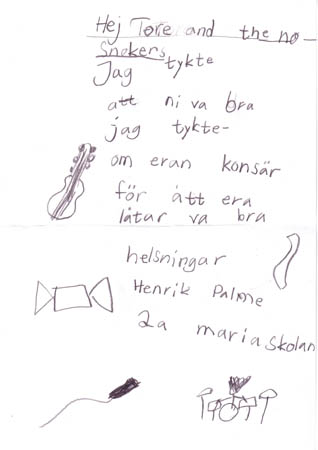 Hej Tore and the no-
Snokers
Jag tykte
att ni va bra
jag tykte-
om eran konsär
för att era
låtar va bra
helsningar
Henrik Palme
2a mariaskolan